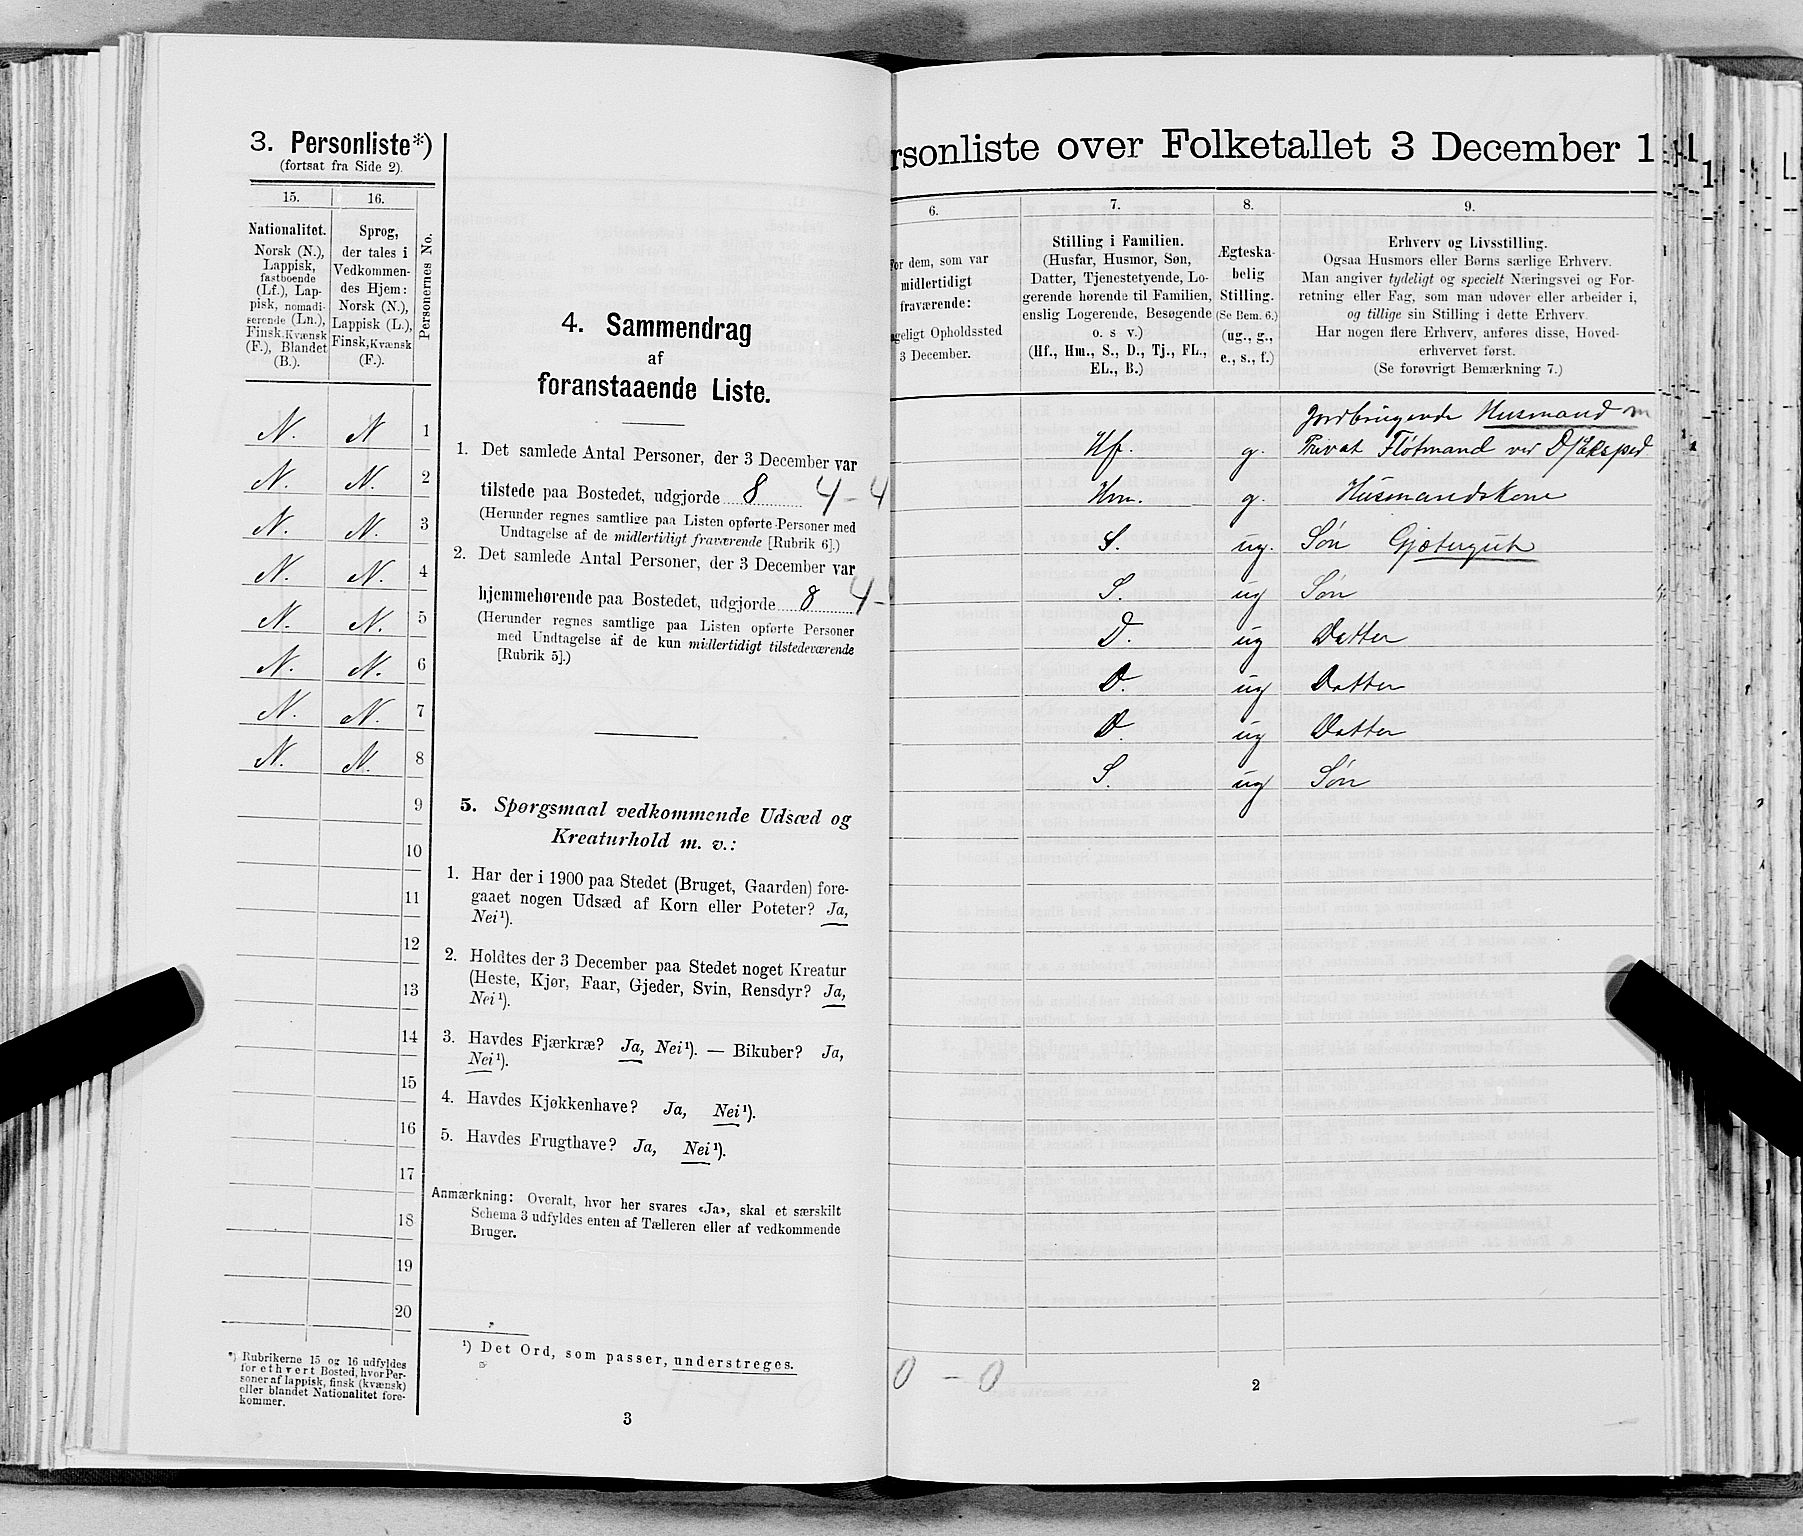 3. Personliste*)
(fortsat fra Side 2).
15. 16.
Nationalitet.
Norsk (N.),
Lappisk,
fastboende
(Lf.), Lap-
pisk, nomadi-
serende (Ln.),
Finsk, Kvænsk
(F.), Blandet
(B.).
Sprog,
der tales i
Vedkommen-
des Hjem:
Norsk (N.),
Lappisk (L.),
Finsk, Kvænsk
(F.).
Personernes No.
N. N 1
N. N. 2
N. N. 3
N. N. 4
N. N. 5
N. N. 6
N. N. 7
N. N. 8
9
10
11
12
13
14
15
16
17
18
19
20
*) Rubrikerne 15 og 16 udfyldes
for ethvert Bosted, hvor Per-
soner af lappisk, finsk (kvænsk)
eller blandet Nationalitet fore-
kommer.
4. Sammendrag
af
foranstaaende Liste.
1. Det samlede Antal Personer, der 3 December var
tilstede paa Bostedet, udgjorde 8 4 - 4
(Herunder regnes samtlige paa Listen opførte Personer med
Undtagelse af de midlertidigt fraværende [Rubrik 6].)
2. Det samlede Antal Personer, der 3 December var
hjemmehørende paa Bostedet, udgjorde 8 4 -
(Herunder regnes samtlige paa Listen opførte Personer
med Undtagelse af de kun midlertidigt tilstedeværende
[Rubrik 5].)
5. Spørgsmaal vedkommende Udsæd og
Kreaturhold m. v.:
1. Har der i 1900 paa Stedet (Bruget, Gaarden) fore-
gaaet nogen Udsæd af Korn eller Poteter? Ja,
Nei¹).
2. Holdtes der 3 December paa Stedet noget Kreatur
(Heste, Kjør, Faar, Gjeder, Svin, Rensdyr? Ja,
Nei¹).
3. Havdes Fjærkræ? Ja, Nei¹). — Bikuber? Ja,
Nei¹).
4. Havdes Kjøkkenhave? Ja, Nei¹).
5. Havdes Frugthave? Ja, Nei¹).
Anmærkning: Overalt, hvor her svares «Ja», skal et særskilt
Schema 3 udfyldes enten af Tælleren eller af vedkommende
Bruger.
¹) Det Ord, som passer, understreges.
3
rsonliste over Folketallet 3 December 1
6. 7. 8. 9.
For dem, som var
midlertidigt
fraværende:
geligt Opholdssted
3 December.
Stilling i Familien.
(Husfar, Husmor, Søn,
Datter, Tjenestetyende, Lo-
gerende hørende til Familien,
enslig Logerende, Besøgende
o. s v.)
(Hf., Hm., S., D., Tj., FL.,
EL., B.)
Ægteska-
belig
Stilling.
(Se Bem. 6.)
(ug., g.,
e., s., f.)
Erhverv og Livsstilling.
Ogsaa Husmors eller Børns særlige Erhverv.
Man angiver tydeligt og specielt Næringsvei og For-
retning eller Fag, som man udøver eller arbeider i,
og tillige sin Stilling i dette Erhverv.
Har nogen flere Erhverv, anføres disse, Hoved-
erhvervet først.
(Se forøvrigt Bemærkning 7.)
Jordbrugende Husmand m
Hf. g. Privat Fløtmand ved
Hm. g. Husmandskone
S. ug. Søn Gjætergut
S. ug Søn
D. ug Datter
D. ug Datter
D. ug Datter
S. ug Søn
0 - 0
2